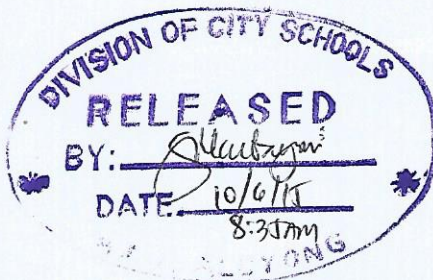 DIVISION OF CITY SCHOOLS
RELEASED
BY:
DATE 10/6/15
8:35AM